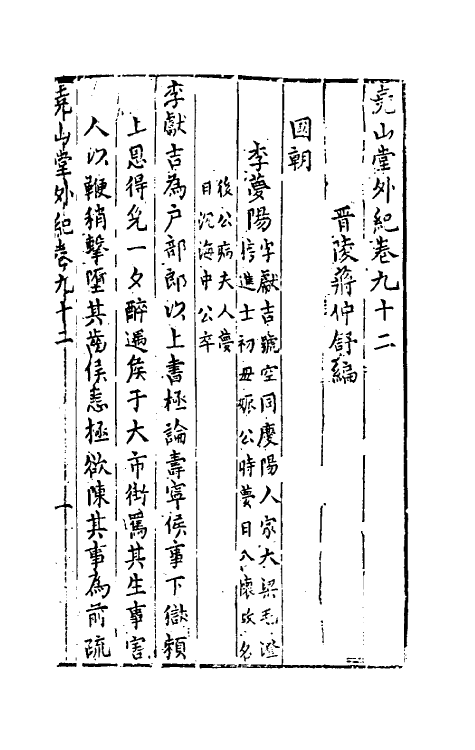 堯山堂外紀卷九十二
晉陵蔣仲舒編
國朝
李夢陽字獻吉號空同慶陽人家大梁毛澄
榜進士初母娠公時夢日入懷故名
後公病夫人夢
日沉海中公卒
李獻吉為戶部郎以上書極論壽寧侯事下獄賴
上恩得免一夕醉遇侯于大市街罵其生事害
人以鞭稍擊墮其齒侯恚極欲陳其事為前疏
堯山堂外紀卷九十二 一